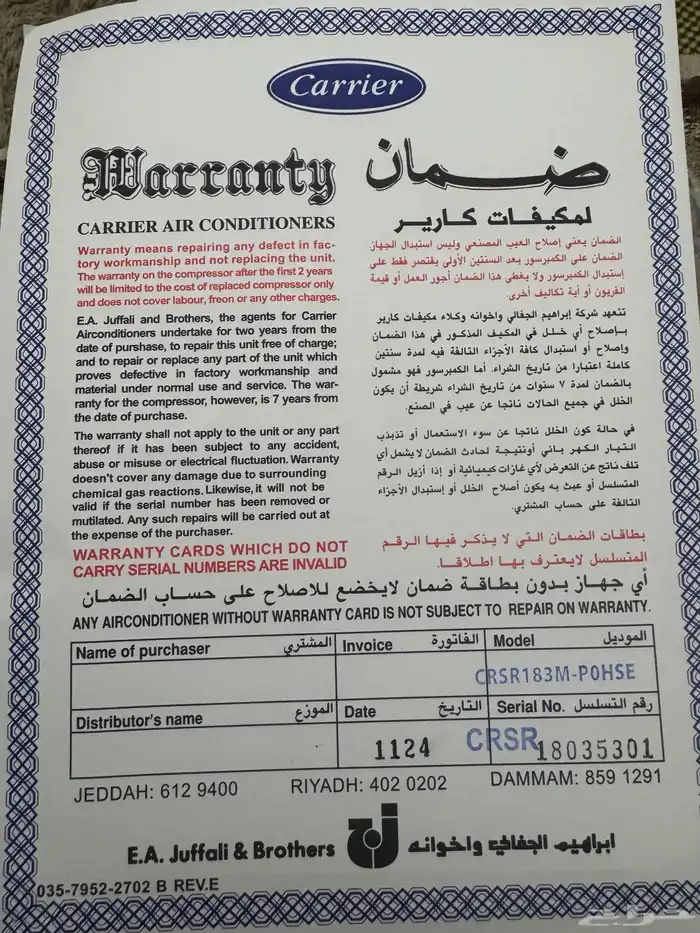 Carrier
Warranty
ضمان
CARRIER AIR CONDITIONERS
لمكيفات كارير
Warranty means repairing any defect in fac-
tory workmanship and not replacing the unit.
The warranty on the compressor after the first 2 years
will be limited to the cost of replaced compressor only
and does not cover labour, freon or any other charges.
الضمان يعني إصلاح العيب المصنعي وليس استبدال الجهاز
الضمان على الكمبرسور بعد السنتين الأولى يقتصر فقط على
إستبدال الكمبرسور ولا يغطي هذا الضمان أجور العمل أو قيمة
الفريون أو أية تكاليف أخرى.
E.A. Juffali and Brothers, the agents for Carrier
Airconditioners undertake for two years from the
date of purshase, to repair this unit free of charge;
and to repair or replace any part of the unit which
proves defective in factory workmanship and
material under normal use and service. The war-
ranty for the compressor, however, is 7 years from
the date of purchase.
تتعهد شركة إبراهيم الجفالي واخوانه وكلاء مكيفات كارير
بإصلاح أي خلل في المكيف المذكور في هذا الضمان
وإصلاح أو استبدال كافة الأجزاء التالفه فيه لمدة سنتين
كاملة اعتبارا من تاريخ الشراء. أما الكمبرسور فهو مشمول
بالضمان لمدة ٧ سنوات من تاريخ الشراء شريطة أن يكون
الخلل في جميع الحالات ناتجا عن عيب في الصنع.
The warranty shall not apply to the unit or any part
thereof if it has been subject to any accident,
abuse or misuse or electrical fluctuation. Warranty
doesn't cover any damage due to surrounding
chemical gas reactions. Likewise, it will not be
valid if the serial number has been removed or
mutilated. Any such repairs will be carried out at
the expense of the purchaser.
في حالة كون الخلل ناتجا عن سوء الاستعمال أو تذبذب
التيار الكهربائي أونتيجة لحادث الضمان لايشمل أي
تلف ناتج عن التعرض لأي غازات كيميائية أو إذا أزيل الرقم
المتسلسل أو عبث به يكون أصلاح الخلل أو إستبدال الأجزاء
التالفة على حساب المشتري.
WARRANTY CARDS WHICH DO NOT
CARRY SERIAL NUMBERS ARE INVALID
بطاقات الضمان التي لا يذكر فيها الرقم
المتسلسل لايعترف بها اطلاقا.
أي جهاز بدون بطاقة ضمان لايخضع للاصلاح على حساب الضمان
ANY AIRCONDITIONER WITHOUT WARRANTY CARD IS NOT SUBJECT TO REPAIR ON WARRANTY.
Name of purchaser المشتري Invoice الفاتورة Model الموديل
CRSR183M-P0HSE
Distributor's name الموزع Date التاريخ Serial No. رقم التسلسل
1124 CRSR18035301
JEDDAH: 612 9400 RIYADH: 402 0202 DAMMAM: 859 1291
E.A. Juffali & Brothers ابراهيم الجفالي واخوانه
035-7952-2702 B REV.E
حراج